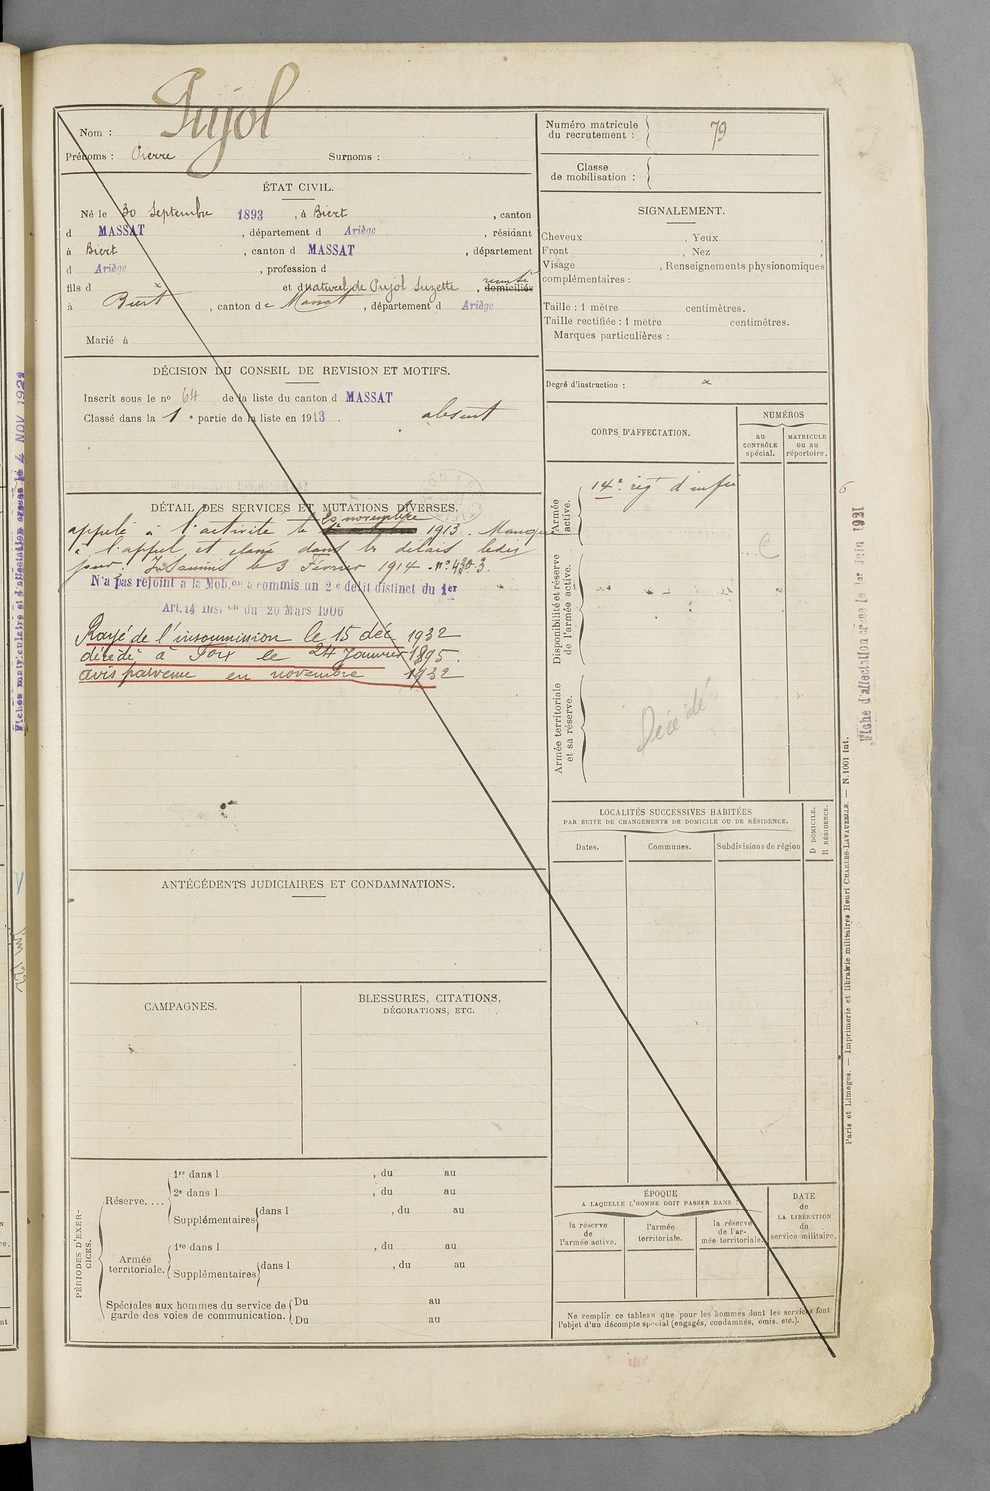 Pujol
Nom :
Prénoms : Pierre Surnoms :
ÉTAT CIVIL.
Né le 30 Septembre 1893, à Biert, canton
d MASSAT, département d Ariège, résidant
à Biert, canton d MASSAT, département
d Ariège, profession d
fils d x et d naturel de Pujol Suzette, domiciliés
à Biert, canton de Massat, département d Ariège
Marié à
DÉCISION DU CONSEIL DE REVISION ET MOTIFS.
Inscrit sous le nº 64 de la liste du canton d MASSAT
Classé dans la 1e partie de la liste en 1913. absent
DÉTAIL DES SERVICES ET MUTATIONS DIVERSES.
appelé à l'activité le 25 novembre 1913. Manqué
à l'appel et classé dans les délais ledit
jour. Insoumis le 3 Février 1914 - nº 430-3.
N'a pas rejoint à la Mob.on a commis un 2e délit distinct du 1er
Art. 14 Inst on du 20 Mars 1906
Rayé de l'insoumission le 15 déc 1932
décédé à Foix le 24 Janvier 1895.
avis parvenu en novembre 1932
ANTÉCÉDENTS JUDICIAIRES ET CONDAMNATIONS.
CAMPAGNES.
BLESSURES, CITATIONS,
DÉCORATIONS, ETC.
PÉRIODES D'EXERCICES.
Réserve....
1re dans l , du au
2e dans l , du au
Supplémentaires dans l , du au
Armée territoriale.
1re dans l , du au
Supplémentaires dans l , du au
Spéciales aux hommes du service de garde des voies de communication.
Du au
Du au
Numéro matricule
du recrutement : 79
Classe
de mobilisation :
SIGNALEMENT.
Cheveux , Yeux ,
Front , Nez ,
Visage , Renseignements physionomiques
complémentaires :
Taille : 1 mètre centimètres.
Taille rectifiée : 1 mètre centimètres.
Marques particulières :
Degré d'instruction : x
CORPS D'AFFECTATION.
NUMÉROS
au
CONTRÔLE
spécial.
MATRICULE
ou au
répertoire.
Armée active.
14e rég t d'infie
Disponibilité et réserve de l'armée active.
Armée territoriale et sa réserve.
Décédé
LOCALITÉS SUCCESSIVES HABITÉES
PAR SUITE DE CHANGEMENTS DE DOMICILE OU DE RÉSIDENCE.
Dates. Communes. Subdivisions de région
D DOMICILE.
R RÉSIDENCE.
ÉPOQUE
A LAQUELLE L'HOMME DOIT PASSER DANS :
la réserve
de
l'armée active.
l'armée
territoriale.
la réserve
de l'ar-
mée territoriale.
DATE
de
LA LIBÉRATION
du
service militaire.
Ne remplir ce tableau que pour les hommes dont les services font
l'objet d'un décompte spécial (engagés, condamnés, omis, etc.).
Paris et Limoges. — Imprimerie et librairie militaires Henri CHARLES-LAVAUZELLE. — N. 1001 Int.
Fiche d'affectation créée le 1er Juin 1921
Fiches matriculaire et d'affectation créées le 4 NOV 1921